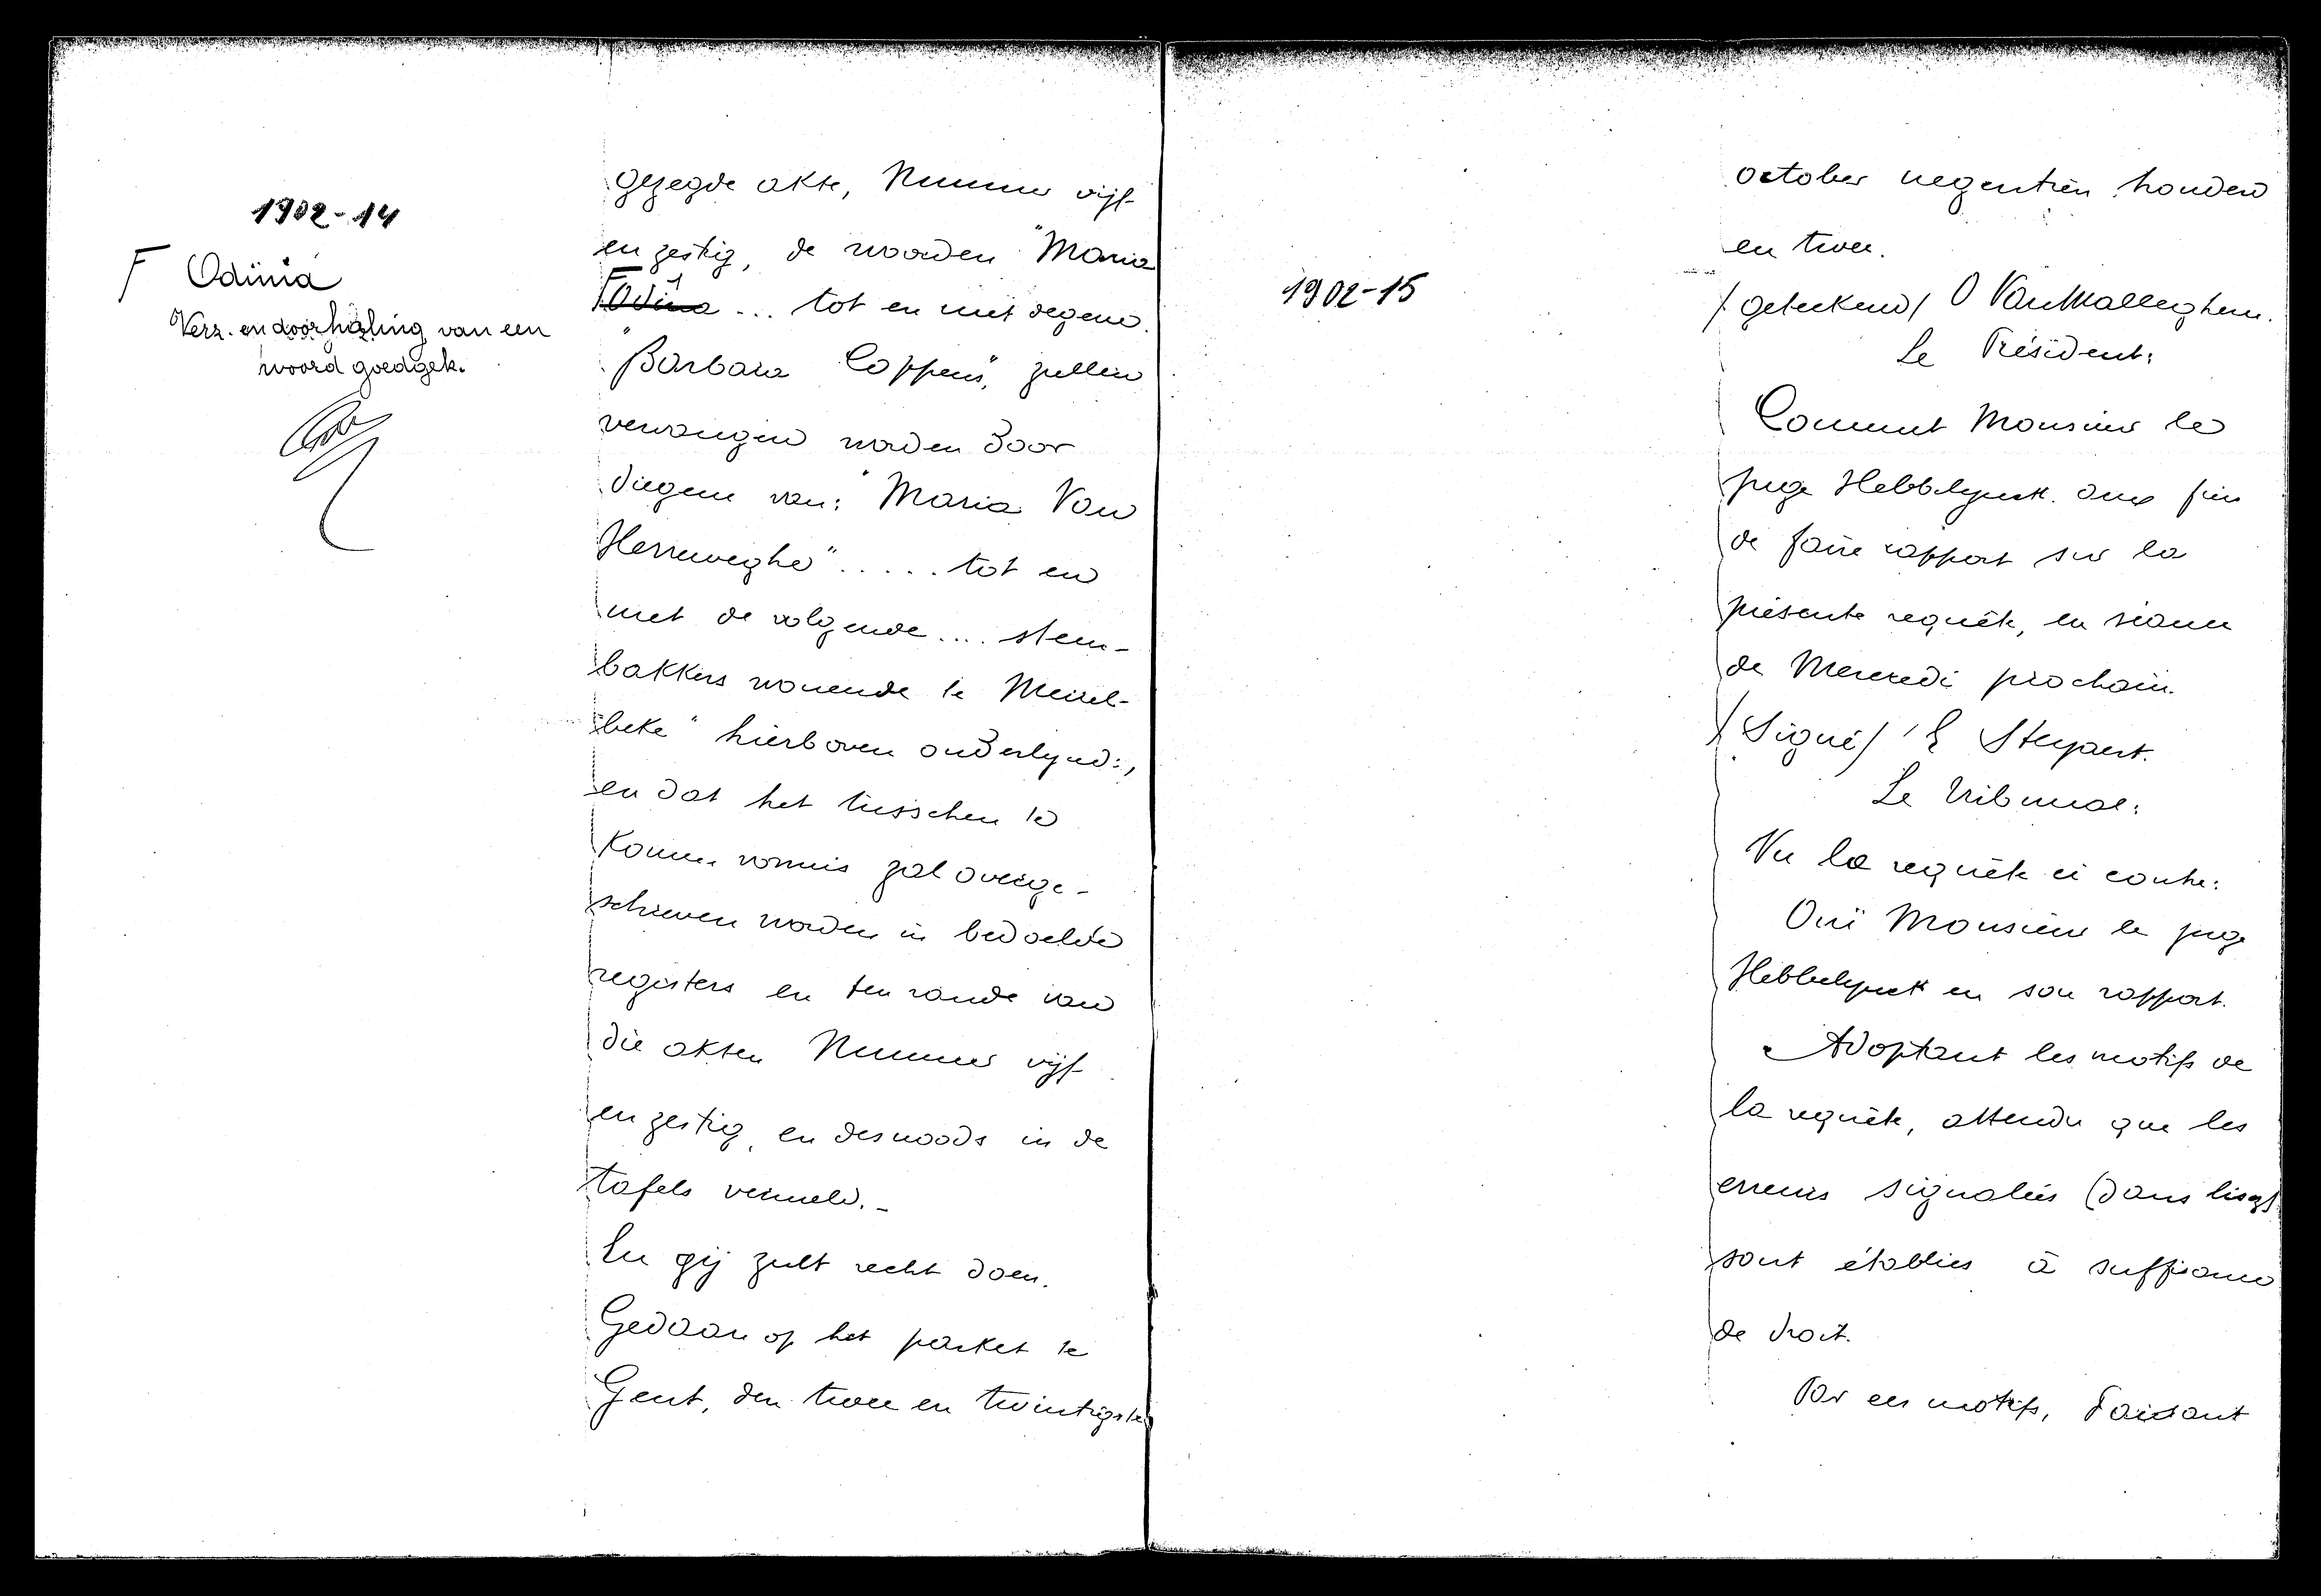 1902-14
F Odinia
Verz. en doorhaling van een
woord goedgek.
gezegde akte, Nummer vijf
en zestig, de woorden "Maria
F Odina ... tot en met degene
"Barbara Coppens", zullen
vervangen worden door
diegene van: "Maria Van
Herreweghe" ..... tot en
met de volgende .... steen-
bakkers wonende te Meirel-
beke" hierboven onderlynd:,
en dat het tusschen te
komen vonnis zal overge-
schreven worden in bedoelde
registers en ten rande van
die akten Nummer vijf
en zestig, en desnoods in de
tafels vermeld._
En gij zult recht doen.
Gedaan op het parket te
Gent, den twee en twintigste
1902-15
october negentien honderd
en twee.
/geteekend/ O Van Malleghem.
Le Président:
Commet Monsieur le
juge Hebbelynck aux fins
de faire rapport sur la
présente requête, en séance
de Mercredi prochain.
/Signé/ E Steyaert.
Le Tribunal:
Vu la requête ci contre:
Ouï Monsieur le juge
Hebbelynck en son rapport.
Adoptant les motifs de
la requête, attendu que les
erreurs signalées
sont établies à suffisance
de droit.
Par ces motifs, Faisant